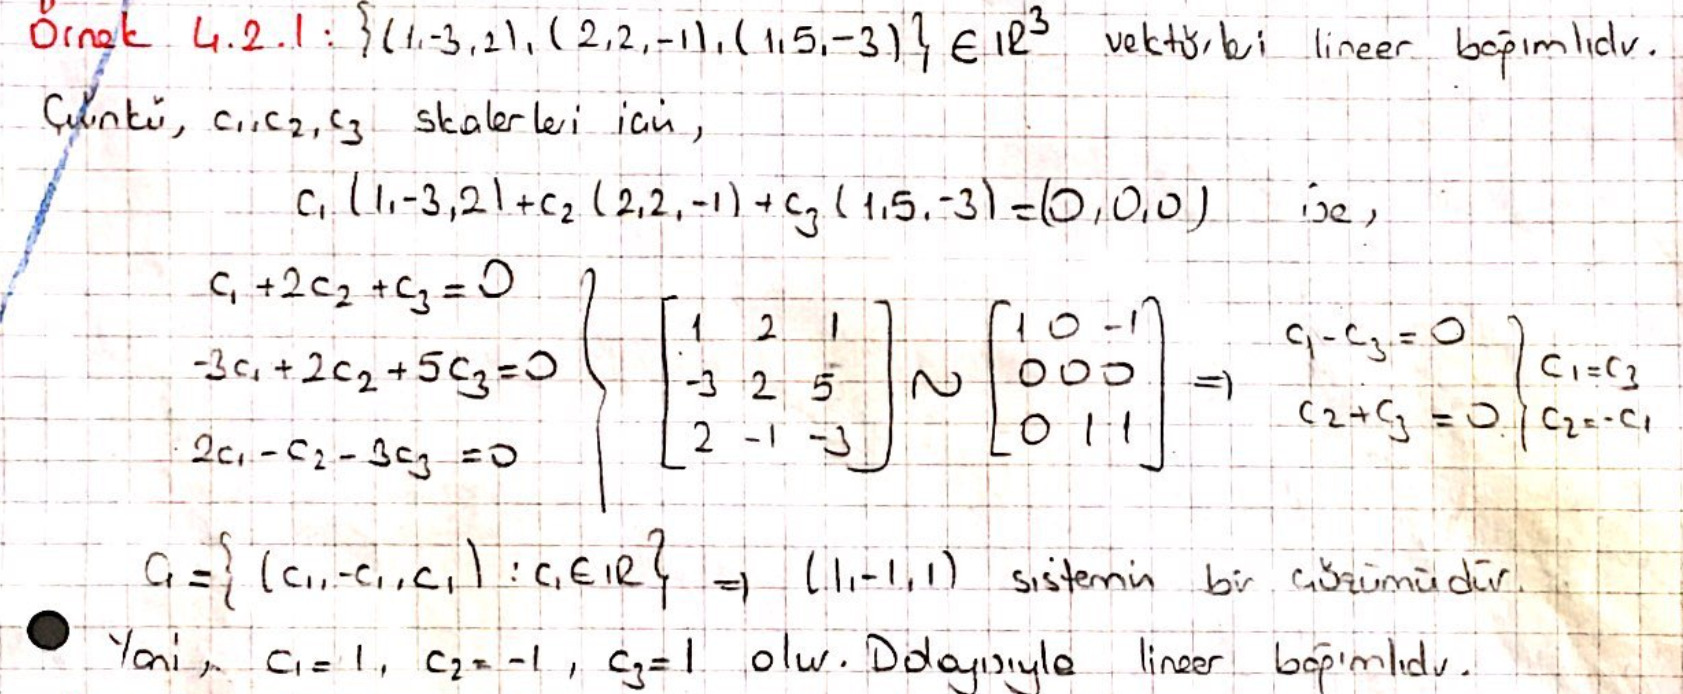 Örnek 4.2.1: {(1,-3,2), (2,2,-1), (1,5,-3)} ∈ IR³ vektörleri lineer bağımlıdır.
Çünkü, c₁, c₂, c₃ skalerleri için,
c₁ (1,-3,2) + c₂ (2,2,-1) + c₃ (1,5,-3) = (0,0,0) ise,
c₁ + 2c₂ + c₃ = 0
-3c₁ + 2c₂ + 5c₃ = 0
2c₁ - c₂ - 3c₃ = 0
} [1 2 1
-3 2 5
2 -1 -3] ~ [1 0 -1
0 0 0
0 1 1] ⇒ c₁ - c₃ = 0
c₂ + c₃ = 0 } c₁ = c₃
c₂ = -c₁
Ç = {(c₁, -c₁, c₁) : c₁ ∈ IR} ⇒ (1,-1,1) sistemin bir çözümüdür.
Yani, c₁ = 1, c₂ = -1, c₃ = 1 olur. Dolayısıyla lineer bağımlıdır.